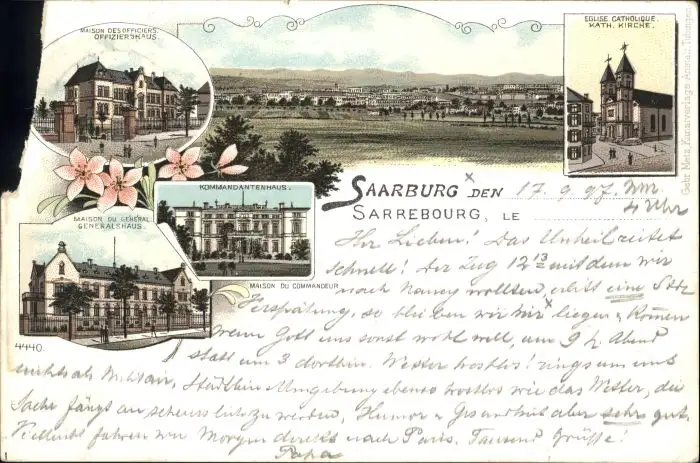 MAISON DES OFFICIERS.
OFFIZIERSHAUS.
EGLISE CATHOLIQUE.
KATH. KIRCHE.
KOMMANDANTENHAUS.
MAISON DU GENERAL
GENERALSHAUS.
MAISON DU COMMANDEUR
4440.
SAARBURG DEN 17. 9. 97. Nm
SARREBOURG, LE 4 Uhr
Ihr Lieben! Das Unheil reitet
schnell! Der Zug 12 13 mit dem wir
nach Nancy wollten, erlitt eine Stde
Verspätung, so bleiben wir hier liegen & kommen
wenn Gott uns sonst wohl will, um 9 h. Abend
statt um 3 dorthin. Wetter trostlos! rings um uns
nichts als Militair, Städtchen Umgebung ebenso trostlos wie das Wetter, die
Sache fängt an scheusslich zu werden, Humor & Gesundheit aber sehr gut.
Vielleicht fahren wir Morgen direkt nach Paris. Tausend Grüße!
Papa